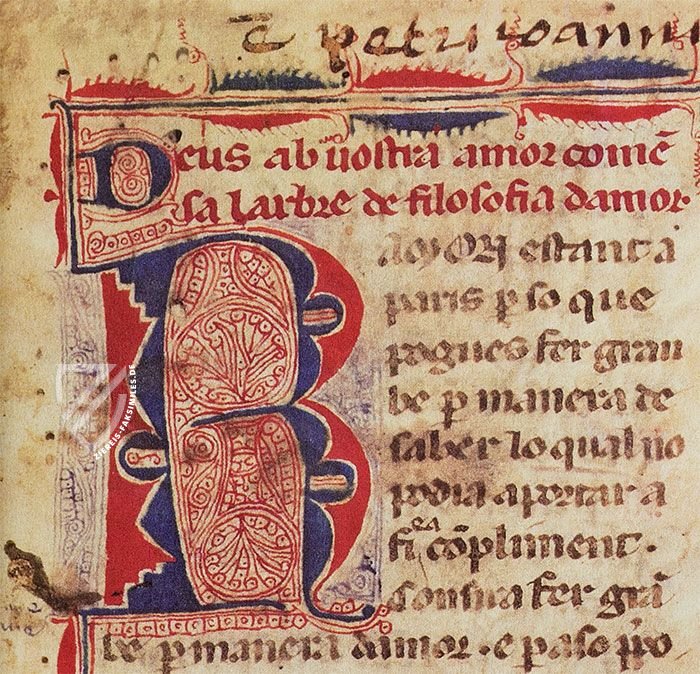 e petri ioanni
Deus ab vostra amor comē
sa larbre de filosofia damor
RAMON estant a
paris p so que
pogues fer gran
be p manera de
saber lo qual no
podia aportar a
fi cōpliment.
consira fer grā
be p manera damor. e p aso ppo
ZIEREIS-FAKSIMILES.DE